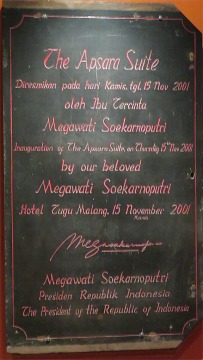 The Apsara Suite
Diresmikan pada hari Kamis, tgl. 15 Nov 2001
oleh Ibu Tercinta
Megawati Soekarnoputri
Inauguration of The Apsara Suite, on Thursday 15th Nov 2001
by our beloved
Megawati Soekarnoputri
Hotel Tugu Malang, 15 November 2001
Megawati Soekarnoputri
Presiden Republik Indonesia
The President of the Republic of Indonesia